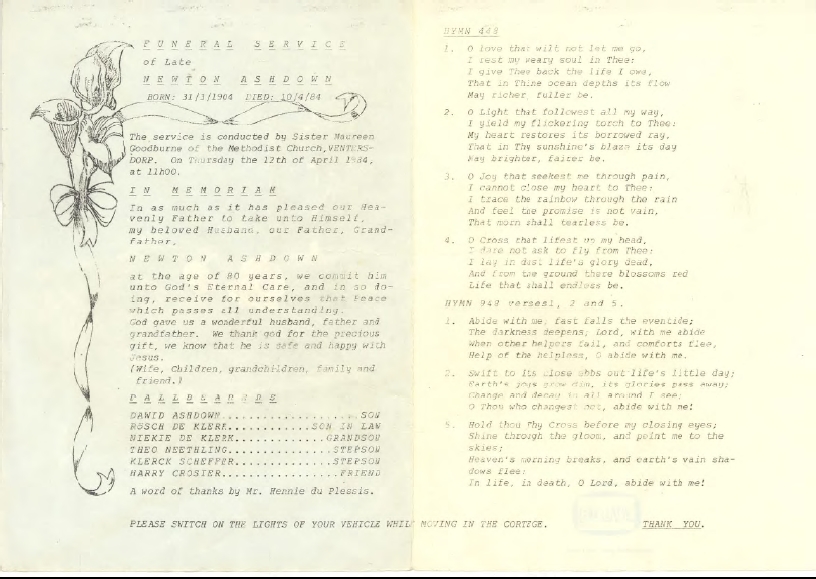 FUNERAL SERVICE
of Late
NEWTON ASHDOWN
BORN: 31/3/1904 DIED: 10/4/84
The service is conducted by Sister Maureen
Goodburne of the Methodist Church, VENTERS-
DORP. On Thursday the 12th of April 1984,
at 11h00.
IN MEMORIAM
In as much as it has pleased our Hea-
venly Father to take unto Himself,
my beloved Husband, our Father, Grand-
father,
NEWTON ASHDOWN
at the age of 80 years, we commit him
unto God's Eternal Care, and in so do-
ing, receive for ourselves that Peace
which passes all understanding.
God gave us a wonderful husband, father and
grandfather. We thank god for the precious
gift, we know that he is safe and happy with
Jesus.
(Wife, Children, grandchildren, family and
friend.)
DAWID ASHDOWN....................SON
ROSCH DE KLERK.............SON IN LAW
NIEKIE DE KLERK..............GRANDSON
THEO NEETHLING...............STEPSON
KLERCK SCHEFFER..............STEPSON
HARRY CROSIER.................FRIEND
A word of thanks by Mr. Hennie du Plessis.
HYMN 448
1. O love that wilt not let me go,
I rest my weary soul in Thee:
I give Thee back the life I owe,
That in Thine ocean depths its flow
May richer, fuller be.
2. O Light that followest all my way,
I yield my flickering torch to Thee:
My heart restores its borrowed ray,
That in Thy sunshine's blaze its day
May brighter, fairer be.
3. O Joy that seekest me through pain,
I cannot close my heart to Thee:
I trace the rainbow through the rain
And feel the promise is not vain,
That morn shall tearless be.
4. O Cross that liftest up my head,
I dare not ask to fly from Thee:
I lay in dust life's glory dead,
And from the ground there blossoms red
Life that shall endless be.
HYMN 948 verses1, 2 and 5.
1. Abide with me; fast falls the eventide;
The darkness deepens; Lord, with me abide
When other helpers fail, and comforts flee,
Help of the helpless, O abide with me.
2. Swift to its close ebbs out life's little day;
Earth's joys grow dim, its glories pass away;
Change and decay in all around I see;
O Thou who changest not, abide with me!
5. Hold thou Thy Cross before my closing eyes;
Shine through the gloom, and point me to the
skies;
Heaven's morning breaks, and earth's vain sha-
dows flee:
In life, in death, O Lord, abide with me!
PLEASE SWITCH ON THE LIGHTS OF YOUR VEHICLE WHILE MOVING IN THE CORTEGE. THANK YOU.